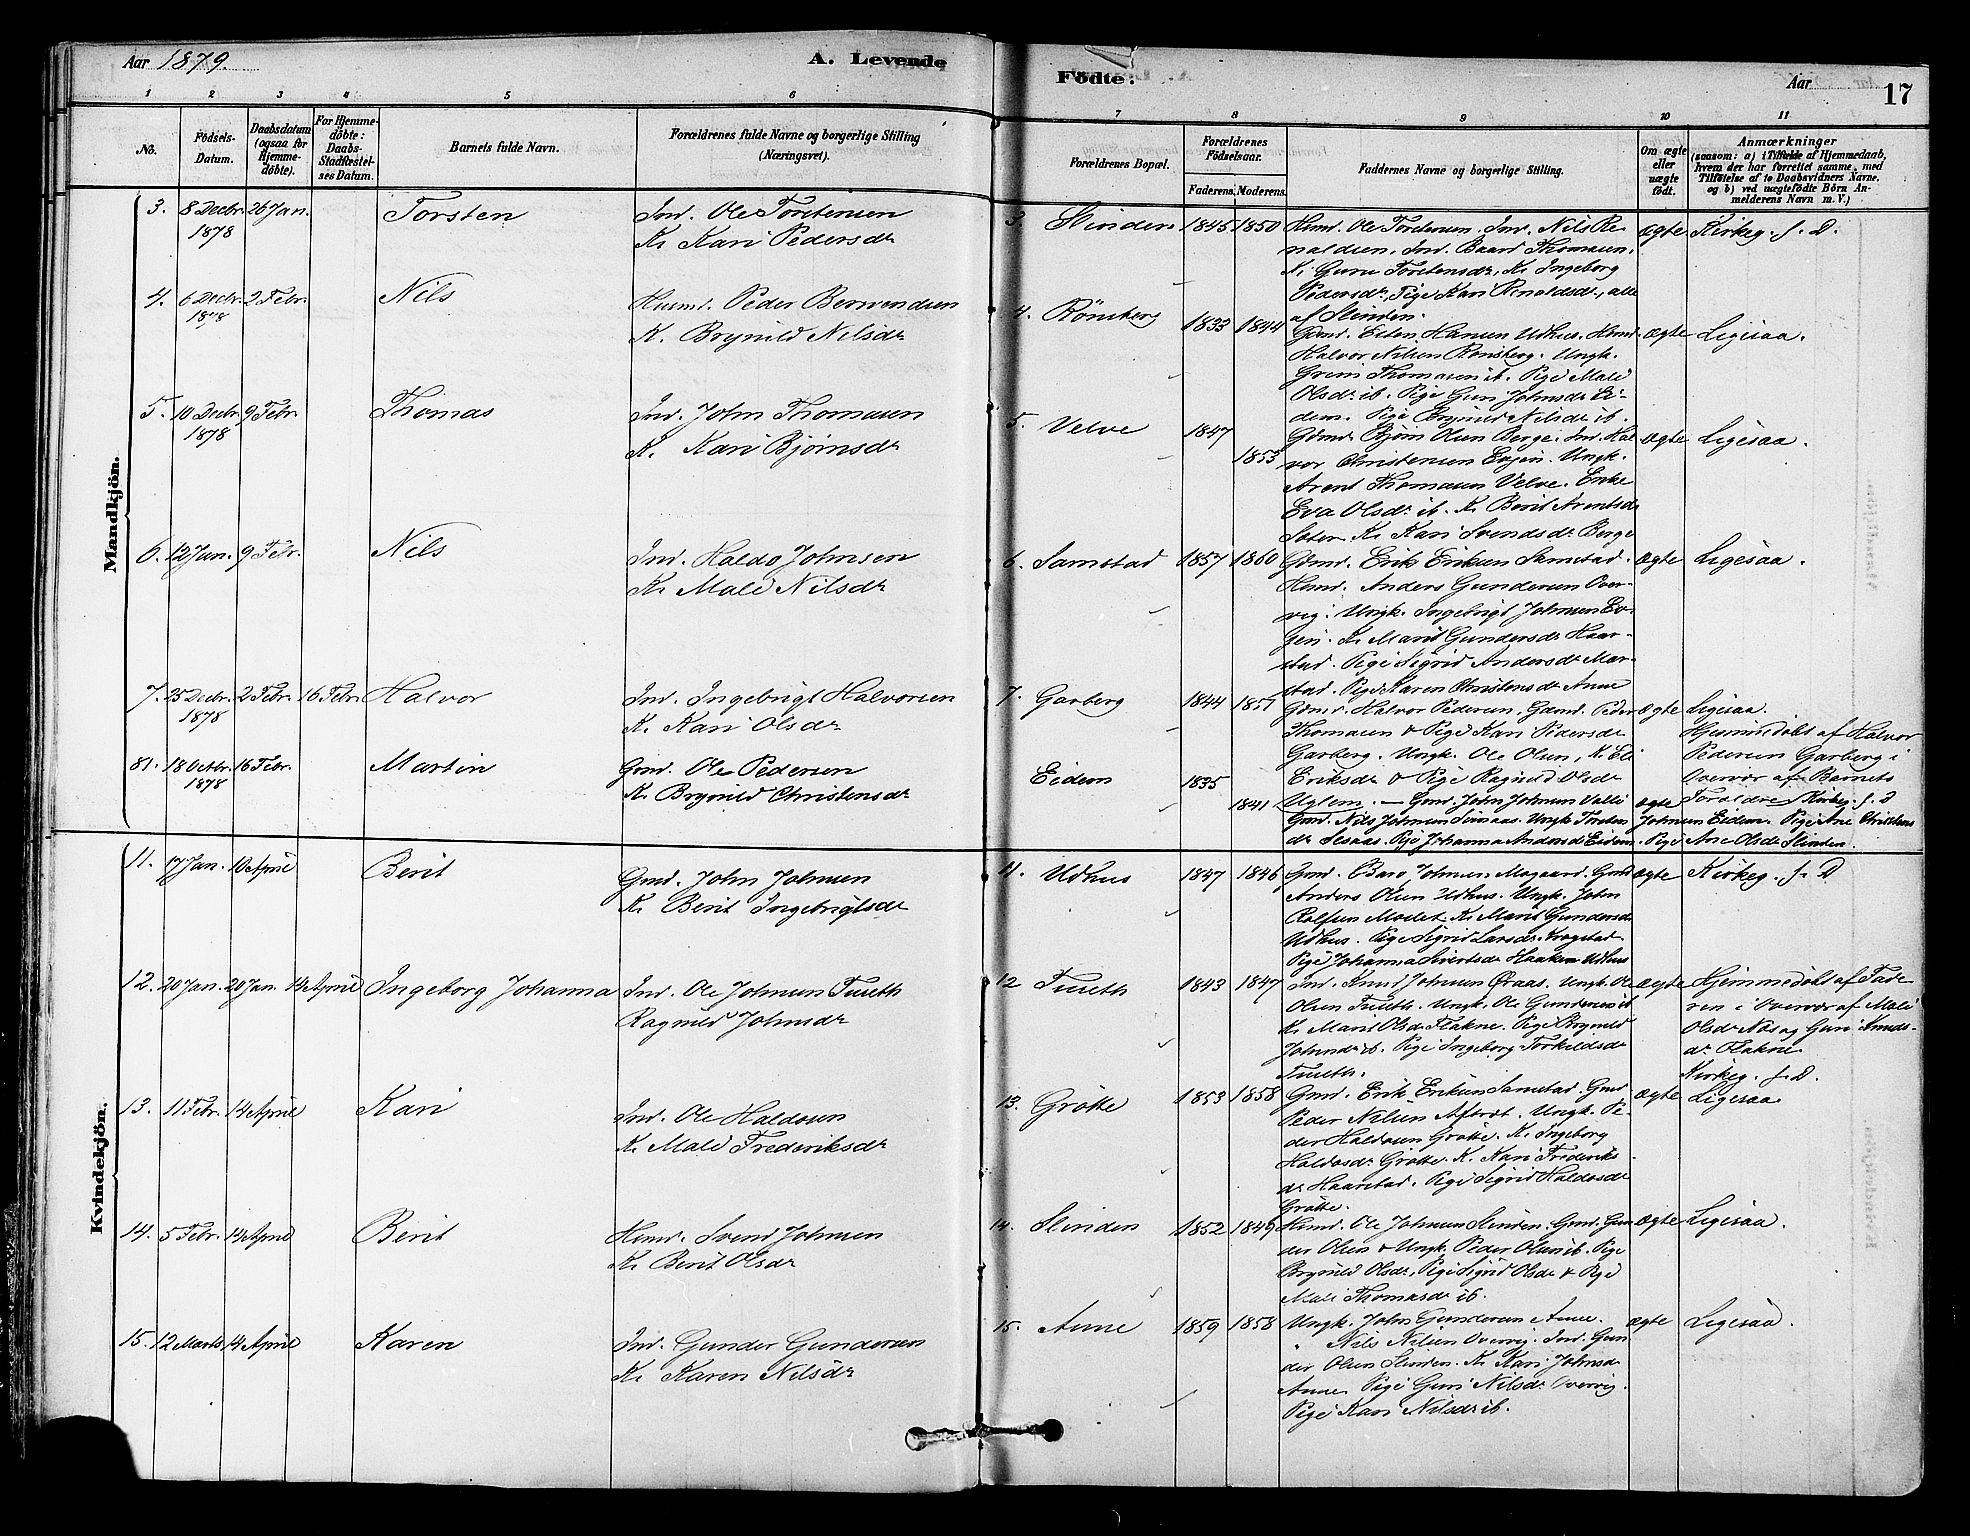 Aar 1879.
A. Levende
Födte:
Aar
17
1 2 3 4 5 6 7 8 9 10 11
No.
Födsels-
Datum.
Daabsdatum
(ogsaa for
Hjemme-
döbte).
For Hjemme-
döbte:
Daabs-
Stadfæstel-
ses Datum.
Barnets fulde Navn.
Forældrenes fulde Navne og borgerlige Stilling
(Næringsvei).
Forældrenes Bopæl.
Forældrenes
Födselsaar.
Faderens. Moderens.
Faddernes Navne og borgerlige Stilling.
Om ægte
eller
uægte
födt.
Anmærkninger
(saasom: a) i Tilfælde af Hjemmedaab,
hvem der har forrettet samme, med
Tilföielse af to Daabsvidners Navne,
og b) ved uægtefödte Börn An-
melderens Navn m. V.)
Mandkjön.
3. 8 Decbr. 26 Jan. Torsten Ind. Ole Torstensen
1878 K. Kari Pedersdr
3. Slinden 1845 1850 Hmd. Ole Torstensen. Ind. Nils Re-
naldsen, Ind. Baard Thomasen,
K. Guru Torstensdr, K. Ingeborg
Pedersdr, Pige Kari Renaldsdr, alle
af Slinden.
ægte Kirkeg. f. D.
4. 6 Decbr. 2 Febr. Nils Husm. Peder Berwendsen
1878 K. Brynild Nilsdr
4. Rönsberg 1833 1844 Gdmd. Esten Hansen Udhus. Hmd.
Halvor Nilsen Rönsberg. Ungk.
Grim Thomasen ib. Pige Mali
Olsdr ib. Pige Guri Johnsdr Ei-
dem. Pige Brynild Nilsdr ib.
ægte Ligesaa.
5. 10 Decbr. 9 Febr. Thomas Ind. John Thomasen
1878 K. Kari Bjørnsdr
5. Velve 1847 1853 Gdmd. Bjørn Olsen Berge. Ind. Hal-
vor Christensen Evjen. Ungk.
Arent Thomasen Velve. Enke
Eva Olsdr ib. K. Berit Arentsdr
K. Kari Svendsdr Berge
ægte Ligesaa.
6. 12 Jan. 9 Febr. Nils Ind. Haldo Johnsen
K. Mali Nilsdr
6. Samstad 1857 1860 Gdmd. Erik Eriksen Samstad.
Hmd. Anders Gundersen Over-
vig. Ungk. Ingebrigt Johnsen Ev-
jen. K. Marit Gundersdr Haar-
stad. Pige Sigrid Andersdr Mar-
stad. Pige Karen Christensdr Aune
ægte Ligesaa.
7. 25 Decbr. 2 Febr. 16 Febr. Halvor Ind. Ingebrigt Halvorsen
1878 K. Kari Olsdr
7. Garberg 1844 1851 Gdmd. Halvor Pedersen, Gdmd. Peder
Thomasen & Pige Kari Pedersdr
Garberg. Ungk. Ole Olsen, K. Eli
Eriksdr & Pige Ragnild Olsdr
Uglem.
ægte Ligesaa.
Hjemmedöbt af Halvor
Pedersen Garberg i
Overvær af Barnets
Forældre
81. 18 Octbr. 16 Febr. Martin Gmd. Ole Pedersen
1878 K. Brynild Christensdr
Eidem 1835 1841 Gmd. John Johnsen Valli
ægte Kirkeg. f. D
Gmd. Nils Johnsen Simsaas. Ungk. Torsten Johnsen Eidem. Pige Ane Christens
dr Sesaas. Pige Johanna Andersdr Eidem. Pige Ane Olsdr Slinden.
Kvindekjön.
11. 17 Jan. 10 April Berit Gmd. John Johnsen
K. Berit Ingebrigtsdr
11. Udhus 1847 1846 Gmd. Baro Johnsen Mogaard. Gmd
Anders Olsen Udhus. Ungk. John
Rolfsen Moslet. K. Marit Gundersdr
Udhus. Pige Sigrid Larsdr Krogstad
Pige Johanna Sivertsdr Haaken Udhus
ægte Kirkeg. f. D
12. 20 Jan. 20 Jan. 14 April Ingeborg Johanna Ind. Ole Johnsen Tuseth
Ragnild Johnsdr
12 Tuseth 1843 1847 Ind. Knud Johnsen Øraas. Ungk. Ole
Olsen Tuseth. Ungk. Ole Gundersen ib
K. Marit Olsdr Flakne. Pige Brynild
Johnsdr ib. Pige Ingeborg Torkildsdr
Tuseth.
ægte Hjemmedöbt af Fade-
ren i Overvær af Mali
Olsdr Næs og Guri Knuds-
dr Flakne
Kirkeg. f. D.
13. 11 Febr. 14 April Kari Ind. Ole Haldosen
K. Mali Frederiksdr
13. Grötte 1853 1858 Gmd. Erik Eriksen Samstad. Gmd
Peder Nilsen Aftret. Ungk. Pe-
der Haldosen Grötte. K. Ingeborg
Haldosdr Grötte. K. Kari Frederiks-
dr Haarstad. Pige Sigrid Haldosdr
Grötte.
ægte Ligesaa
14. 5 Febr. 14 April Berit Hmd. Svend Johnsen
K. Berit Olsdr
14. Slinden 1852 1849 Hmd. Ole Johnsen Slinden. Gmd. Gun-
der Olsen & Ungk. Peder Olsen ib. Pige
Brynild Olsdr, Pige Sigrid Olsdr & Pige
Mali Thomasdr ib.
ægte Ligesaa.
15. 12 Marts 14 April Karen Ind. Gunder Gundersen
K. Karen Nilsdr
15. Aune 1859 1858 Ungk. John Gundersen Aune.
" Nils Nilsen Overvig. Ind. Gun-
der Olsen Slinden. K. Kari Johnsdr
Aune. Pige Guri Nilsdr Overvig.
Pige Kari Nilsdr ib.
ægte Ligesaa.